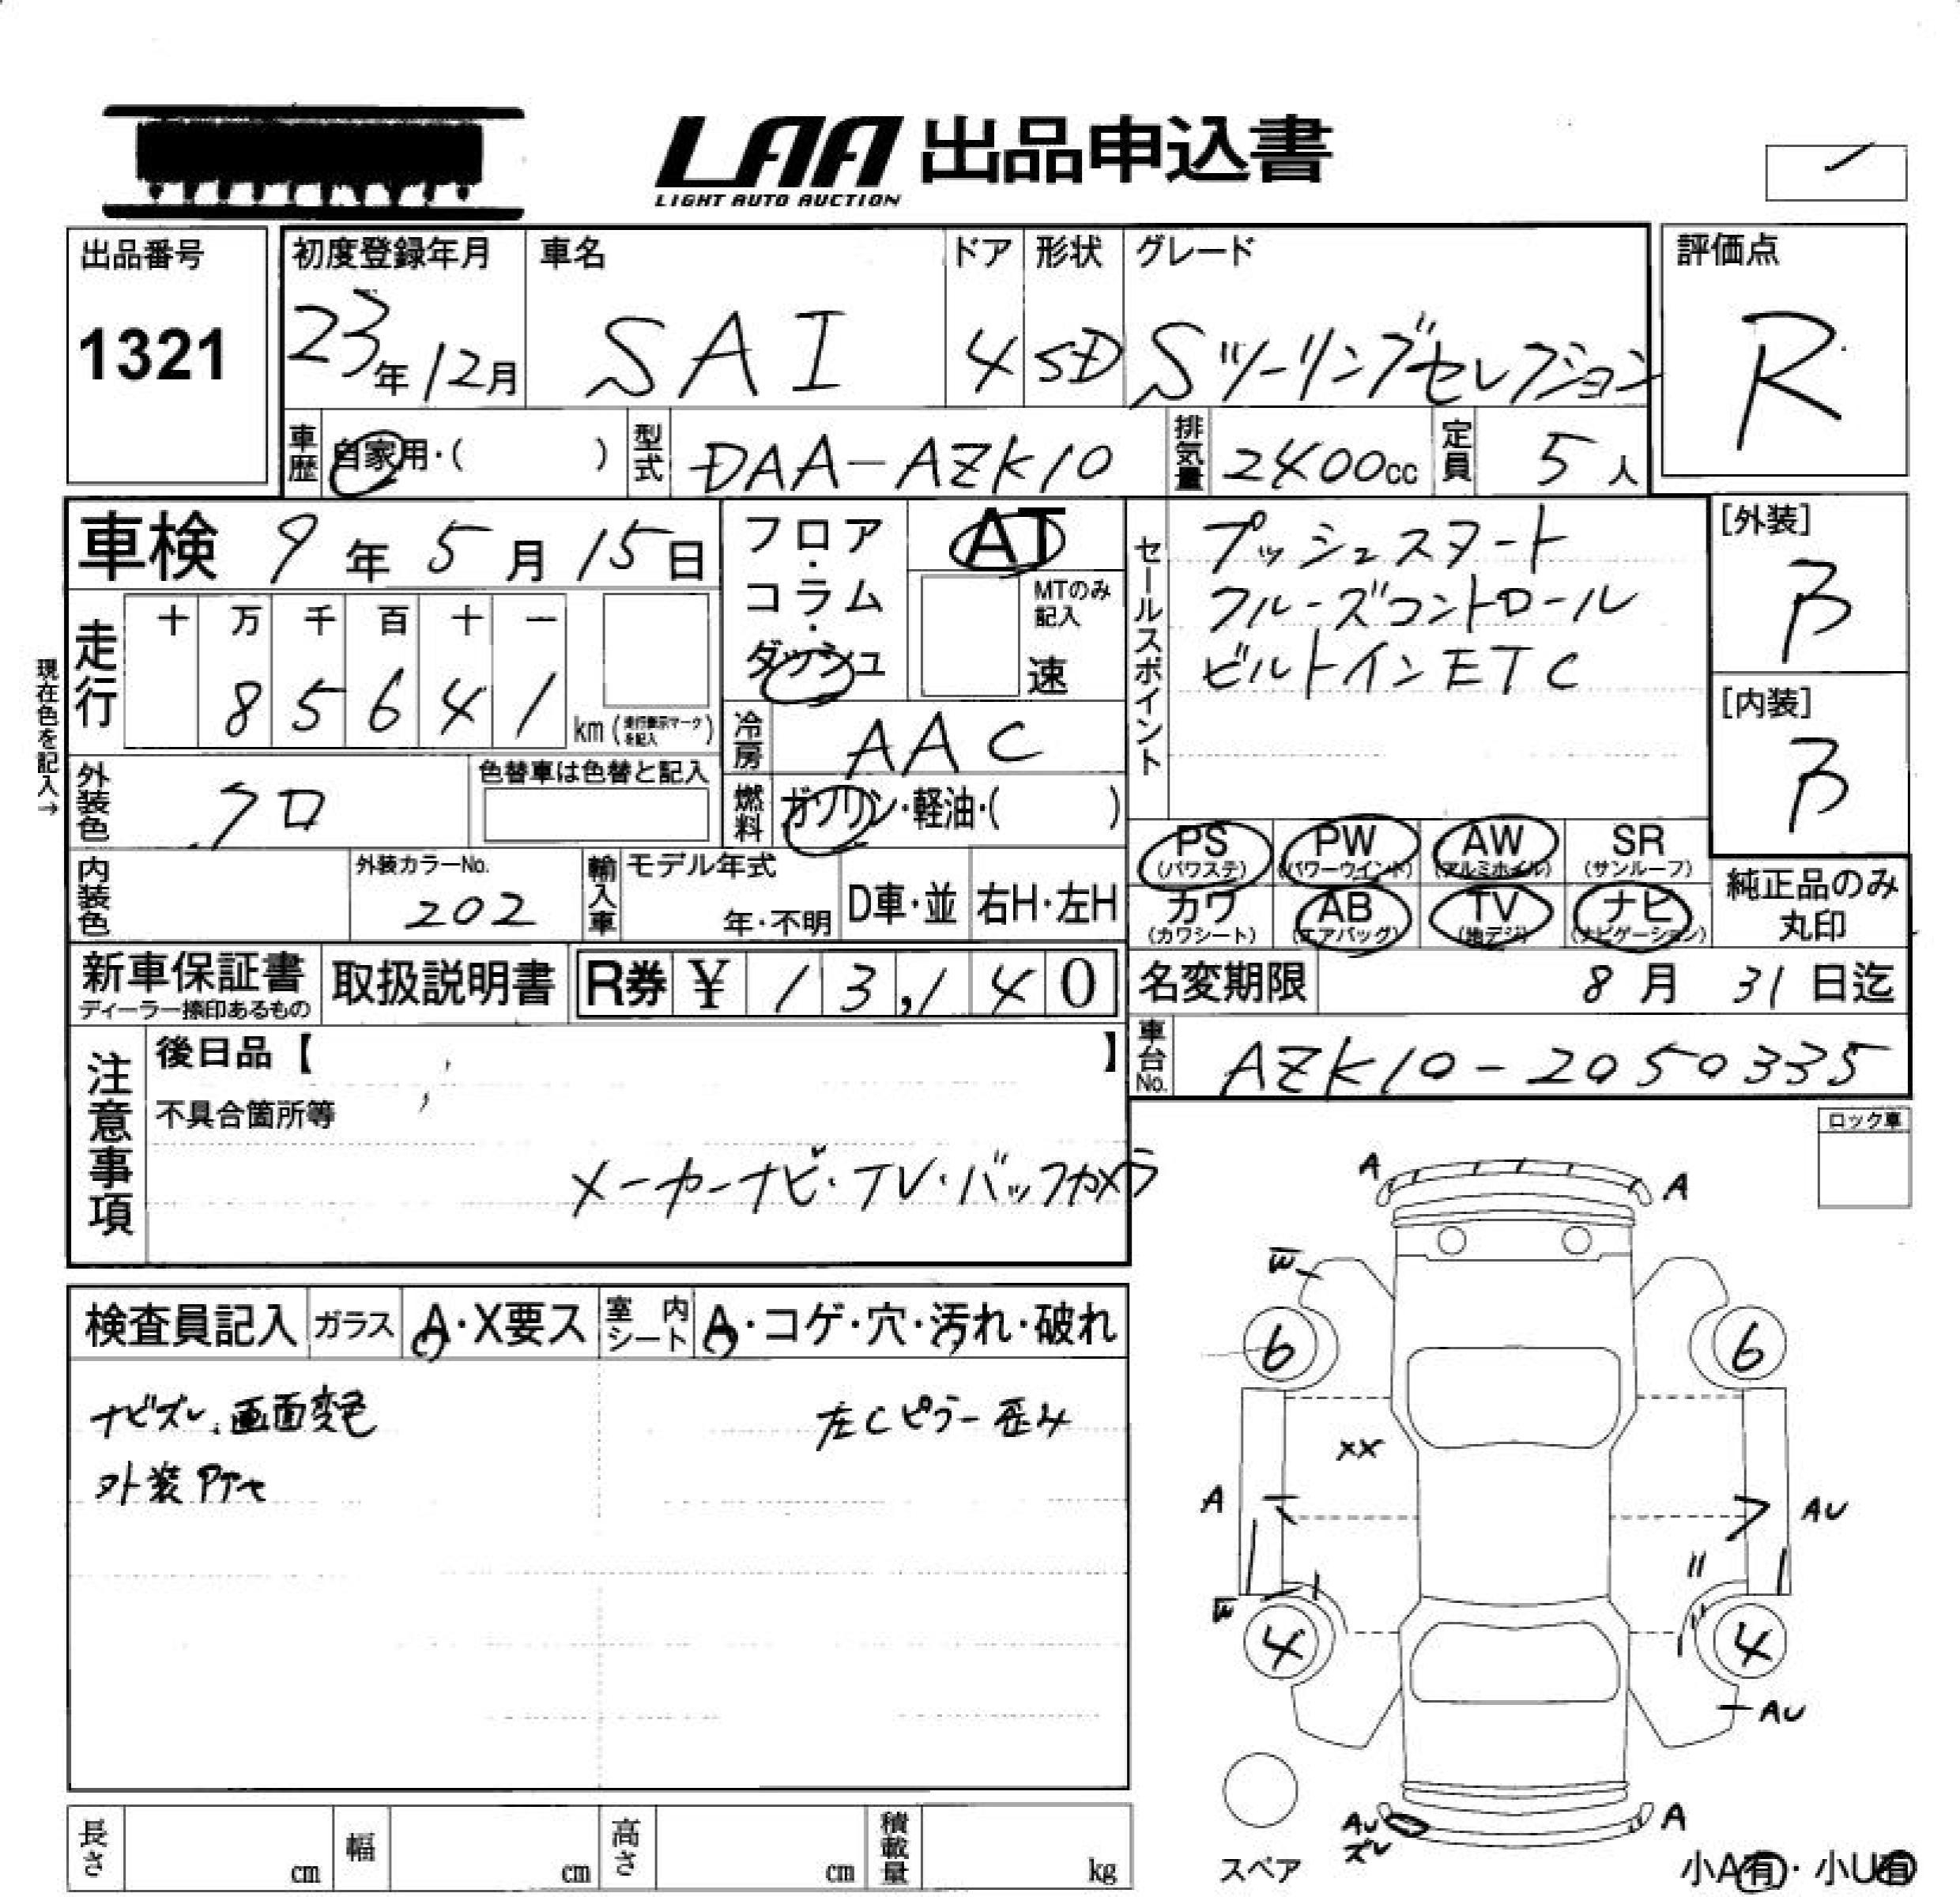 LAA 出品申込書
LIGHT AUTO AUCTION
出品番号 1321
初度登録年月 23年12月
車名 SAI
ドア 4
形状 SD
グレード Sツーリングセレクション
評価点 R
車歴 自家用・( )
型式 DAA-AZK10
排気量 2400cc
定員 5人
車検 9年5月15日
フロア・コラム・ダッシュ
AT
MTのみ記入
速
セールスポイント
プッシュスタート
クルーズコントロール
ビルトインETC
[外装] B
[内装] B
現在色を記入→
走行 十 万 千 百 十 一
8 5 6 4 1 km (走行表示マークを記入)
冷房 AAC
外装色 クロ
色替車は色替と記入
燃料 ガソリン・軽油・( )
PS (パワステ)
PW (パワーウインド)
AW (アルミホイル)
SR (サンルーフ)
内装色
外装カラーNo. 202
輸入車 モデル年式 年・不明
D車・並
右H・左H
カワ (カワシート)
AB (エアバッグ)
TV (地デジ)
ナビ (ナビゲーション)
純正品のみ丸印
新車保証書
ディーラー捺印あるもの
取扱説明書
R券 ¥ 1 3,1 4 0
名変期限 8月31日迄
車台No. AZK10-2050335
注意事項
後日品【 】
不具合箇所等
メーカーナビ・TV・バックカメラ
ロック車
検査員記入
ガラス A・X要ス
室内シート A・コゲ・穴・汚れ・破れ
ナビズレ、画面変色
左Cピラー歪み
外装
A
A
W
6
6
XX
A
AU
W
4
4
AU
AU
ズレ
A
スペア
小A有・小U有
長さ cm
幅 cm
高さ cm
積載量 kg